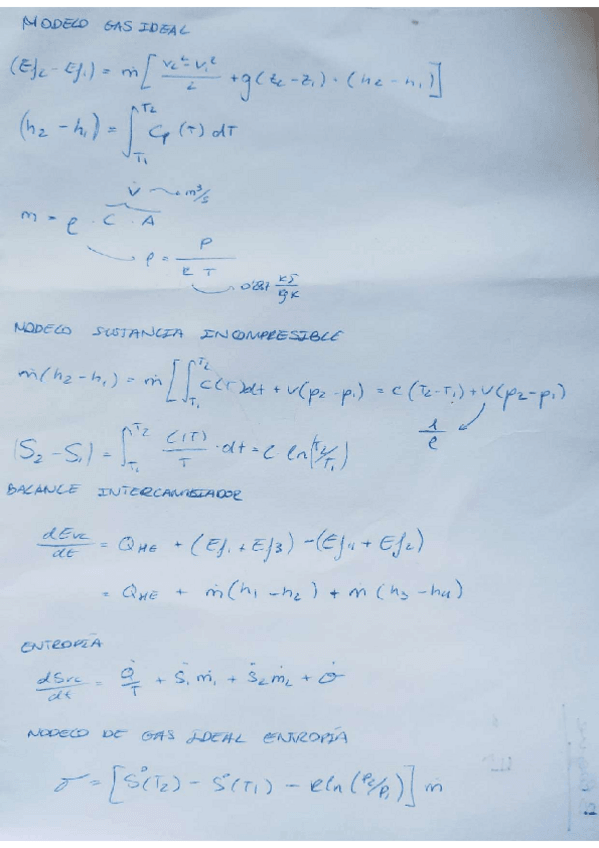 MODELO GAS IDEAL
(Ef₂ - Ef₁) = ṁ [ (v₂² - v₁²)/2 + g(z₂ - z₁) · (h₂ - h₁) ]
(h₂ - h₁) = ∫_{T₁}^{T₂} Cp (T) dT
V̇ m³/s
ṁ = ρ · C · A
ρ = P / (R T)
0'287 kJ/kg K
MODELO SUSTANCIA INCOMPRESIBLE
ṁ(h₂ - h₁) = ṁ [ ∫_{T₁}^{T₂} C(T) dt + v(p₂ - p₁) = c (T₂ - T₁) + v(p₂ - p₁)
1/ρ
|S₂ - S₁| = ∫_{T₁}^{T₂} C(T)/T · dt = C ln(T₂/T₁)
BALANCE INTERCAMBIADOR
dEvc/dt = Q_HE + (Ef₁ + Ef₃) - (Ef₄ + Ef₂)
= Q_HE + ṁ(h₁ - h₂) + ṁ (h₃ - h₄)
ENTROPÍA
dSvc/dt = Q̇/T + Ṡ₁ ṁ₁ + Ṡ₂ ṁ₂ + σ̇
MODELO DE GAS IDEAL ENTROPÍA
σ = [ S°(T₂) - S°(T₁) - R ln (P₂/P₁) ] ṁ